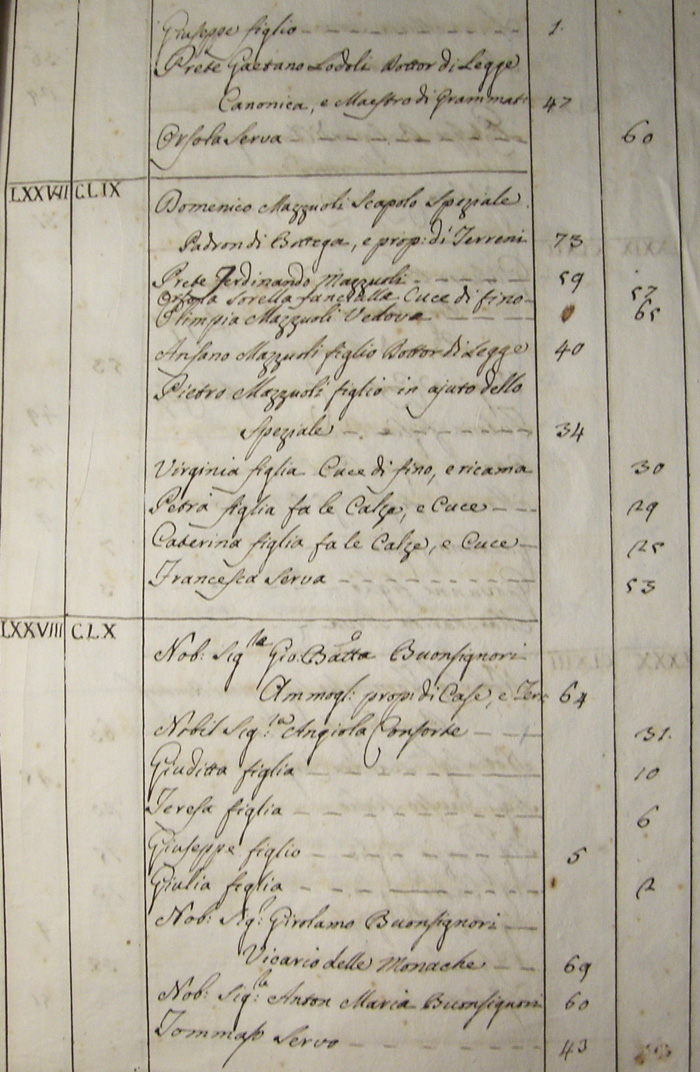 Giuseppe figlio 1.
Prete Gaetano Lodoli Dottor di Legge
Canonica, e Maestro di Grammati 47
Orsola Serva 60
LXXVII CLIX
Domenico Mazzuoli Scapolo Speziale
Padron di Bottega, e prop: di Terreni 73
Prete Ferdinando Mazzuoli 59
Orsola Sorella fanciulla Cuce di fino 57
Olimpia Mazzuoli Vedova 65
Ansano Mazzuoli figlio Dottor di Legge 40
Pietro Mazzuoli figlio in ajuto dello
Speziale 34
Virginia figlia Cuce di fino, e ricama 30
Petra figlia fa le Calze, e Cuce 29
Caterina figlia fa le Calze, e Cuce 25
Francesca Serva 53
LXXVIII CLX
Nob: Sig. Gio: Batta Buonsignori
Ammogl: prop: di Case, e Terr 64
Nobil Sig:ra Angiola Consorte 31.
Giuditta figlia 10
Teresa figlia 6
Giuseppe figlio 5
Giulia figlia 2
Nob: Sig: Girolamo Buonsignori
Vicario delle Monache 69
Nob: Sig: Anton Maria Buonsignori 60
Tommaso Servo 43